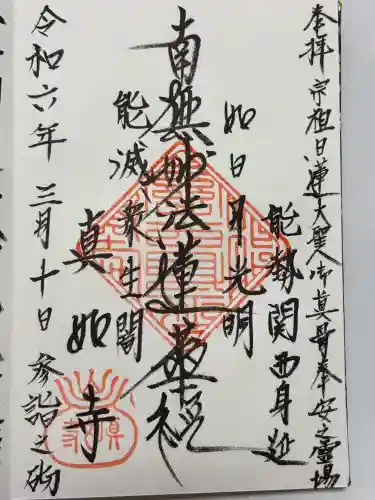 奉拝 宗祖日蓮大聖人御真骨奉安之霊場
能勢関西身延
如日月光明
南無妙法蓮華経
能滅衆生闇
真如寺
令和六年 三月十日 参詣之砌